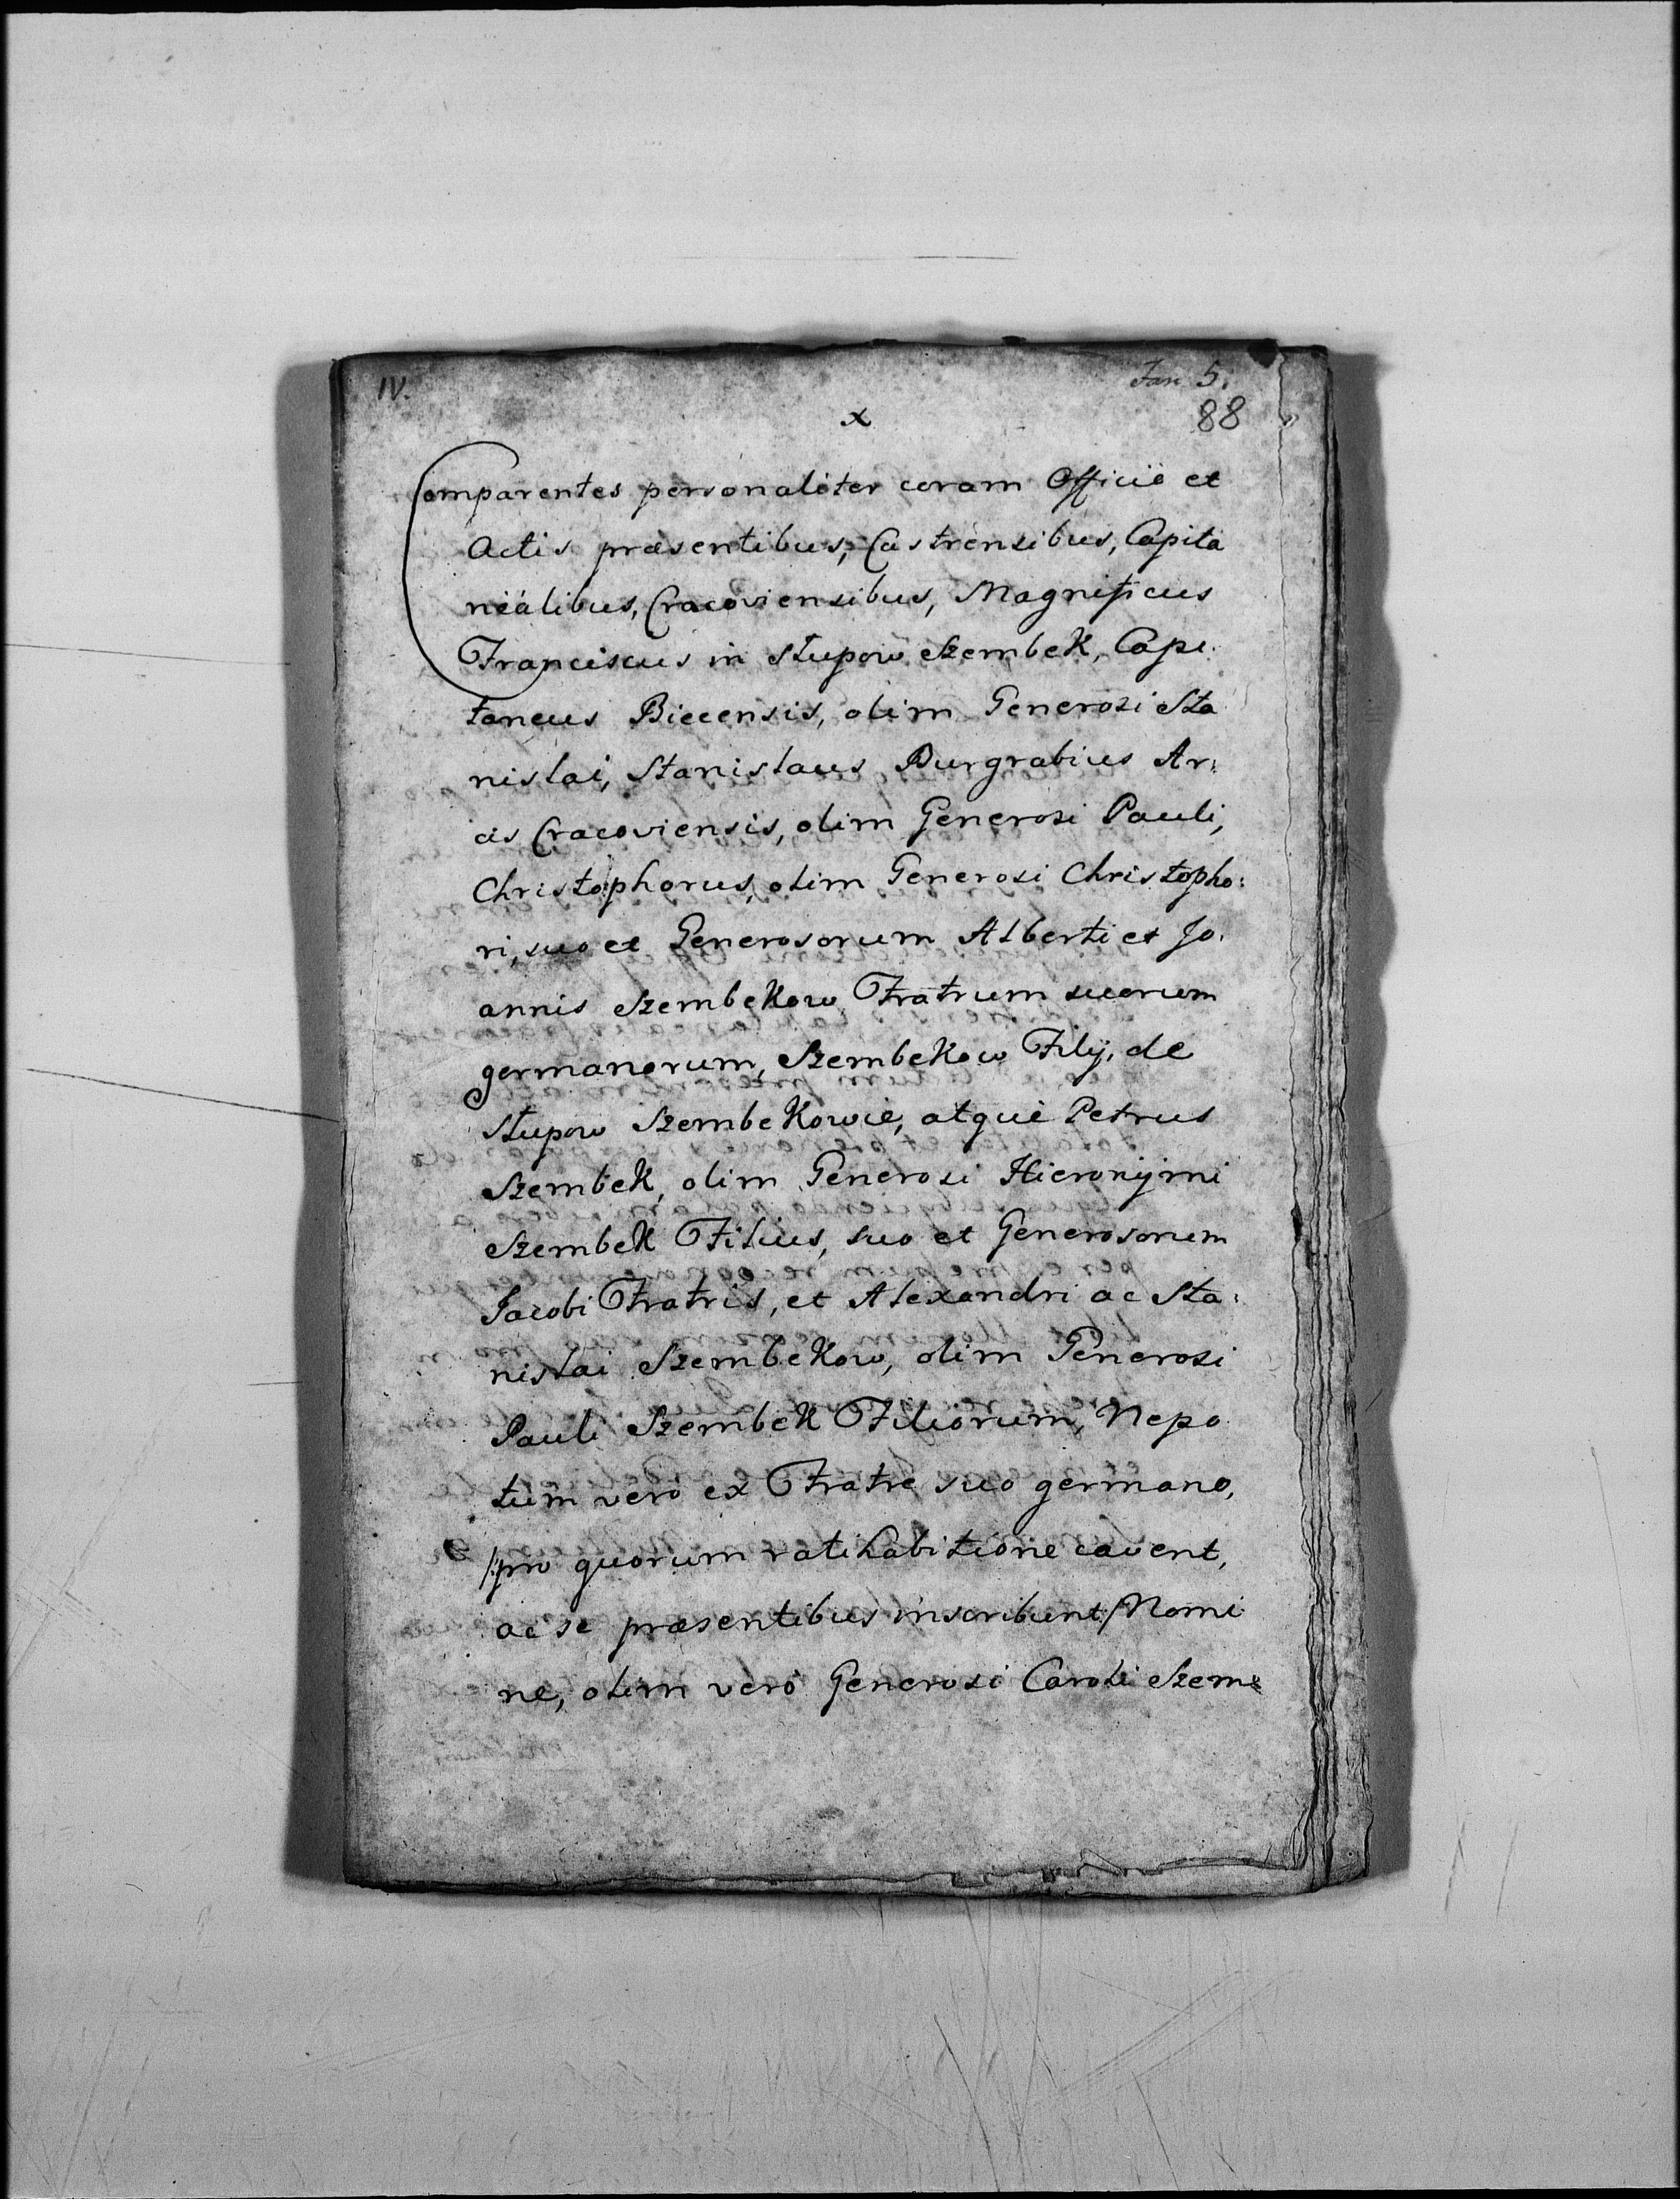 IV.
Fan 5.
x
88
Comparentes personaliter coram Officiô et
Actis præsentibus, Castrensibus, Capita
nèalibus, Cracoviensibus, Magnificus
Franciscus in Słupow Szembek, Capi
taneus Biecensis, olim Generosi Sta
nislai, Stanislaus Burgrabius Ar:
cis Cracoviensis, olim Generosi Pauli,
Christophorus, olim Generosi Christopho:
ri, suo et Generosorum Alberti et Jo:
annis Szembekow Fratrum suorum
germanorum, Szembekow Filij, de
Słupow Szembekowie, atquè Petrus
Szembek, olim Generosi Hieronÿmi
Szembek Filius, suo et Generosorum
Jacobi Fratris, et Alexandri ac Sta:
nislai Szembekow, olim Generosi
Pauli Szembek Filiorum, Nepo
tum verò ex Fratre suo germano,
/:pro quorum ratihabitione cavent,
ac se præsentibus inscribunt:/ Nomi
ne, olim verò Generosi Caroli Szem: